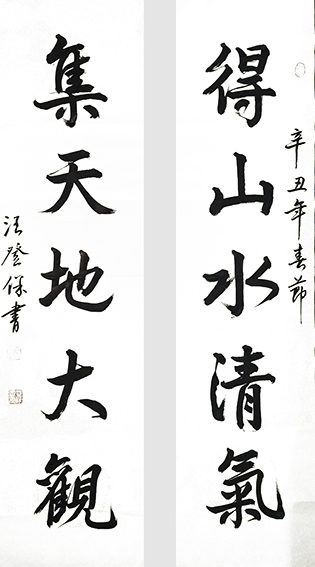 辛丑年春节
得山水清氣
集天地大觀
汪登保書